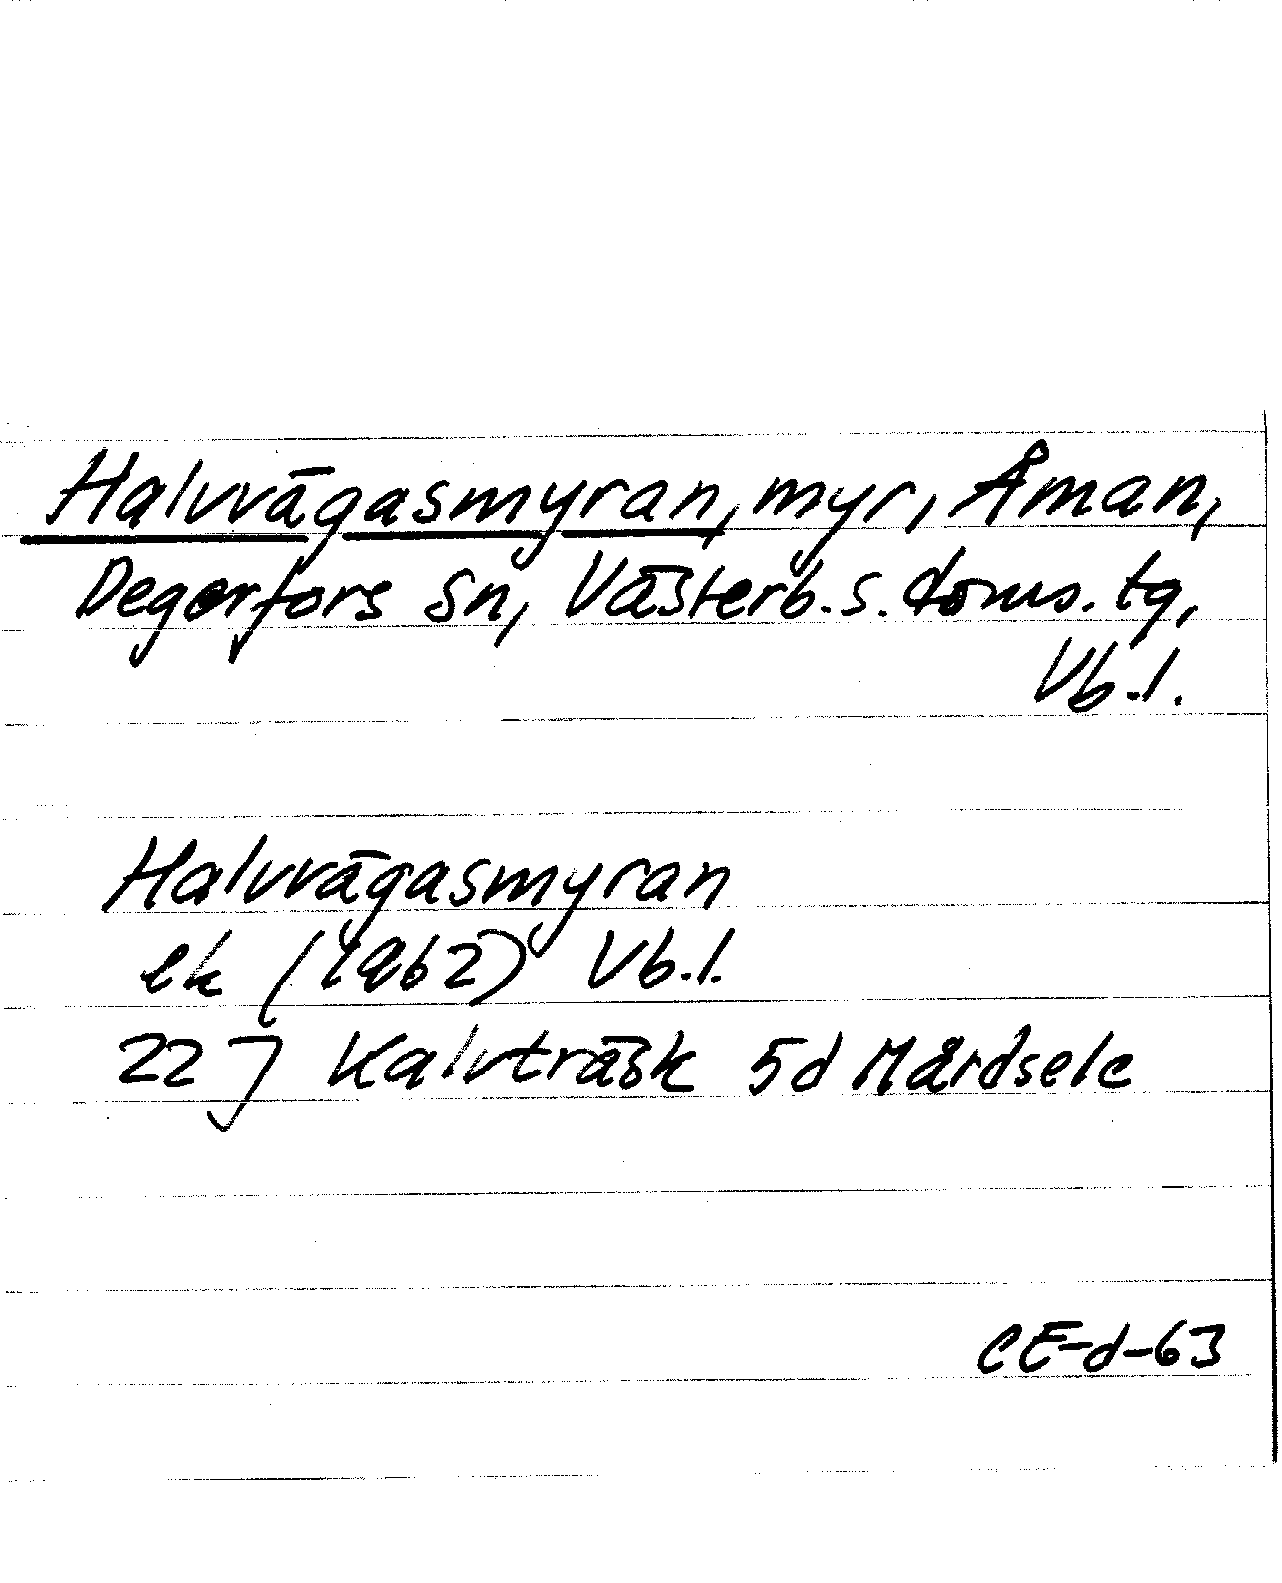 Halvvägasmyran, myr, Åman,
Degerfors sn, Västerb. s. doms. tg,
Vb. l.
Halvvägasmyran
ek (1962) Vb. l.
22 J Kalvträsk 5d Mårdsele
CE-d-63